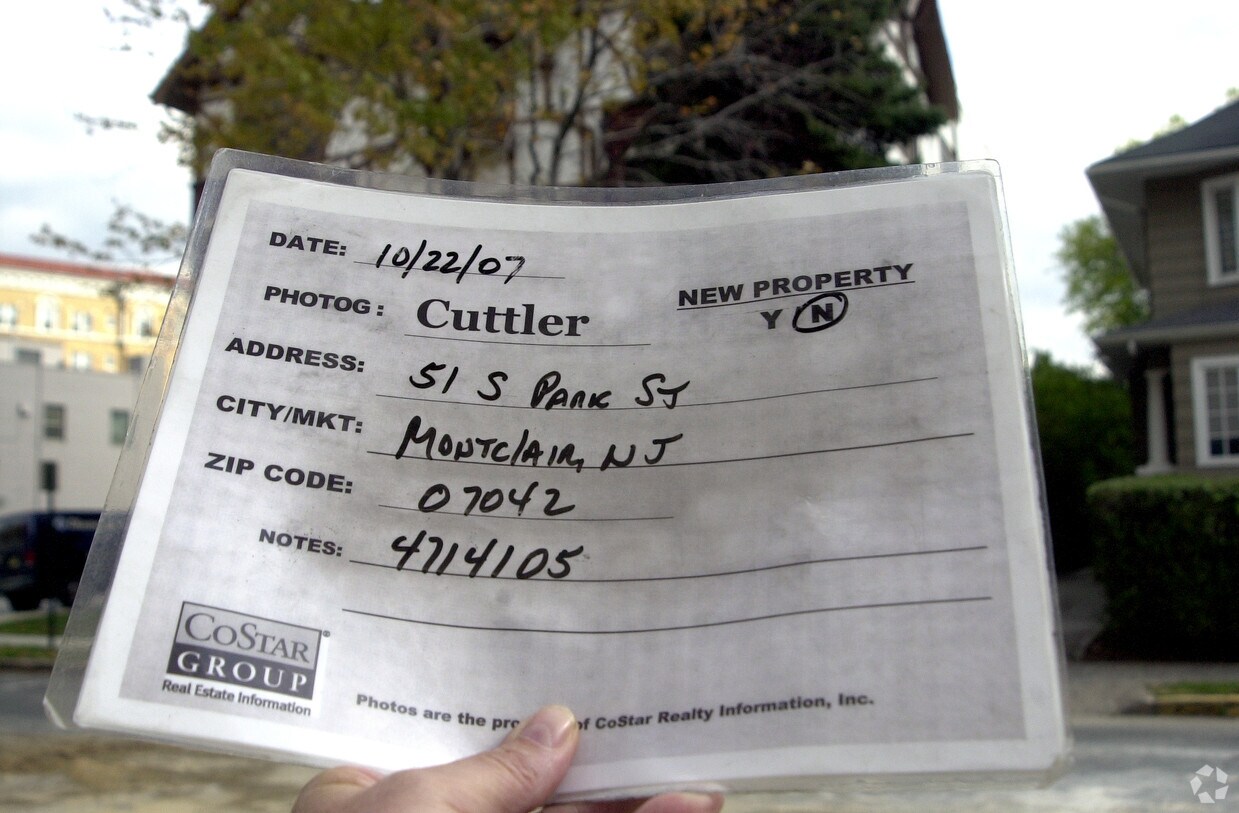 DATE: 10/22/07
NEW PROPERTY
Y N
PHOTOG: Cuttler
ADDRESS: 51 S PARK ST
CITY/MKT: MONTCLAIR, NJ
ZIP CODE: 07042
NOTES: 4714105
COSTAR
GROUP
Real Estate Information
Photos are the of CoStar Realty Information, Inc.